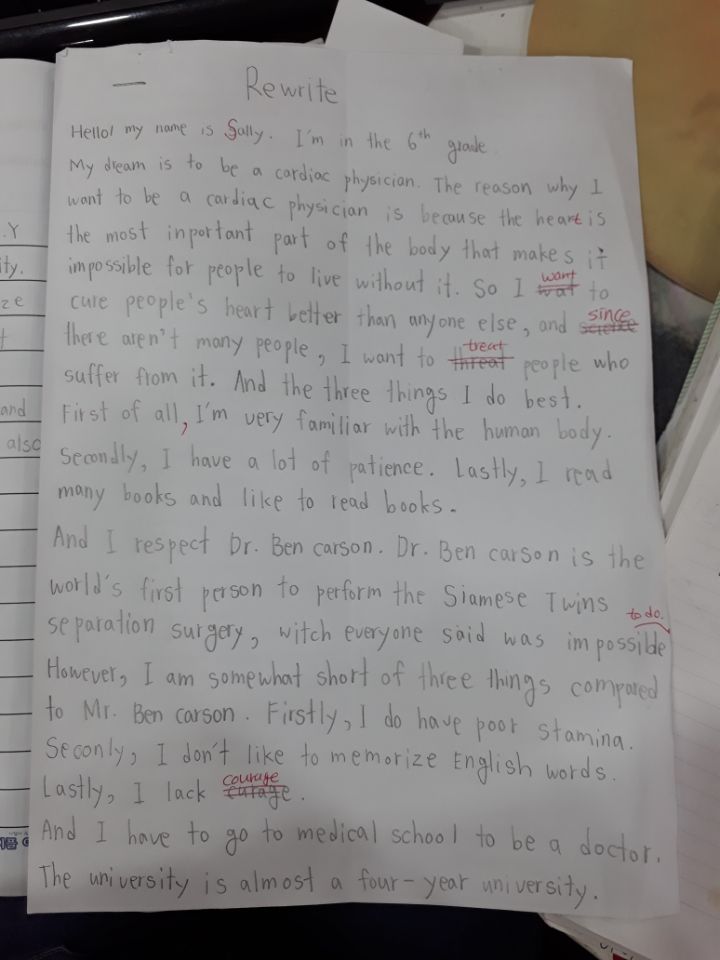 Rewrite
Hello! my name is Sally. I'm in the 6th grade.
My dream is to be a cardiac physician. The reason why I
want to be a cardiac physician is because the heart is
the most inportant part of the body that makes it
impossible for people to live without it. So I wat want to
cure people's heart better than anyone else, and since
there aren't many people, I want to threat treat people who
suffer from it. And the three things I do best.
First of all, I'm very familiar with the human body.
Secondly, I have a lot of patience. Lastly, I read
many books and like to read books.
And I respect Dr. Ben carson. Dr. Ben carson is the
world's first person to perform the Siamese Twins
separation surgery, witch everyone said was impossible to do.
However, I am somewhat short of three things compared
to Mr. Ben carson. Firstly, I do have poor stamina.
Seconly, I don't like to memorize English words.
Lastly, I lack curage courage.
And I have to go to medical school to be a doctor.
The university is almost a four-year university.
.Y
ity.
ize
and
also